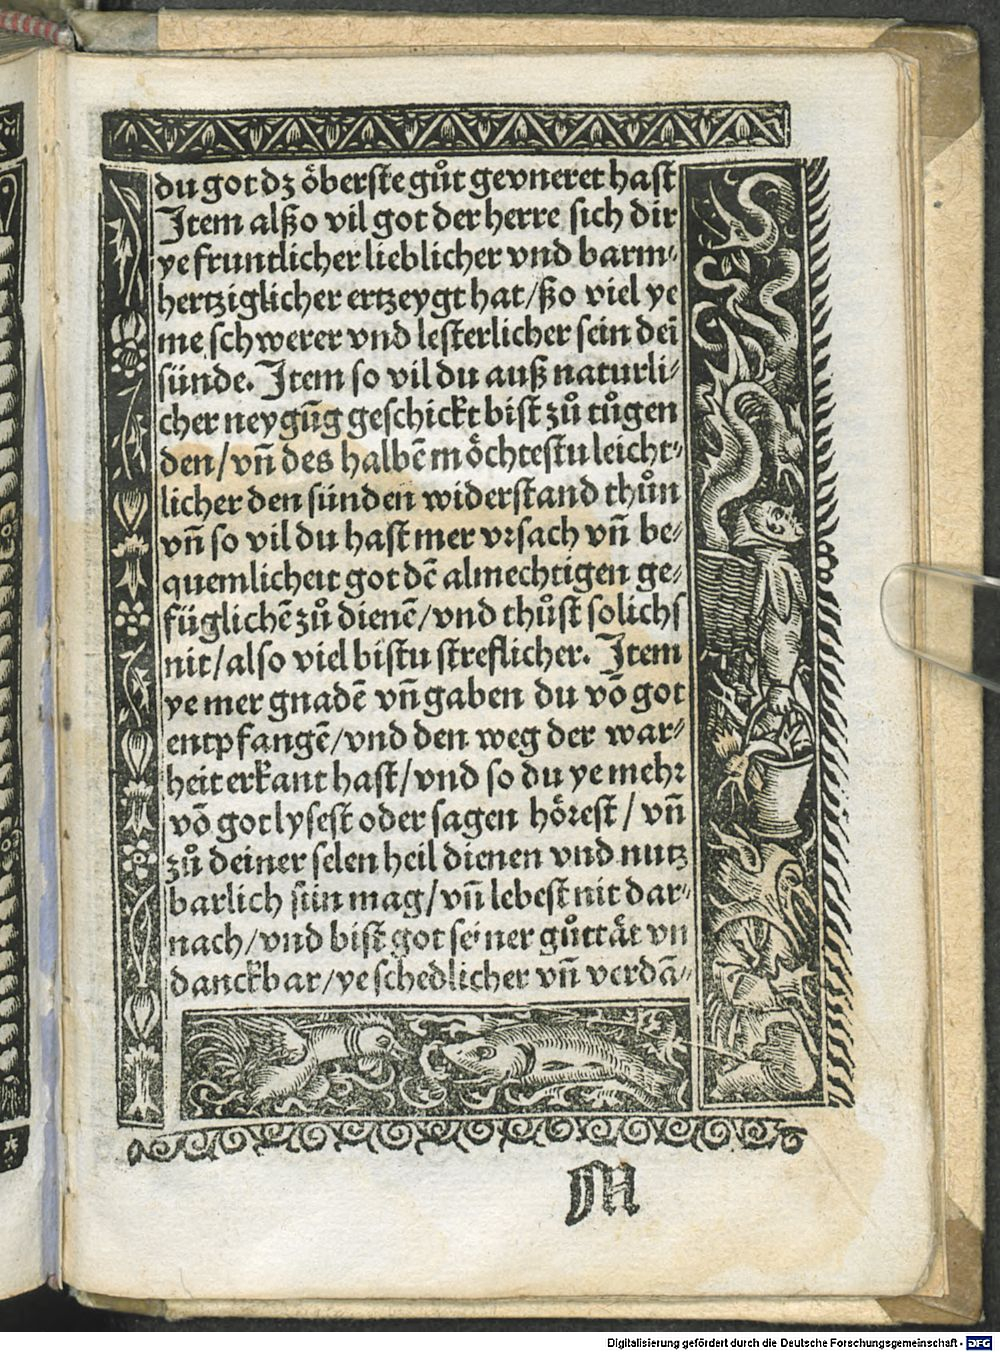 du got dz öberste gůt gevneret hast
Item alßo vil got der herre sich dir
ye fruntlicher lieblicher vnd barm⸗
hertziglicher ertzeygt hat/ßo viel ye
me schwerer vnd lesterlicher sein dei
sünde. Item so vil du auß naturli⸗
cher neygūg geschickt bist zů tůgen
den/vn̄ des halbē möchtestu leicht⸗
licher den sünden widerstand thůn
vn̄ so vil du hast mer vꝛsach vn̄ be⸗
quemlicheit got dē almechtigen ge⸗
füglichē zů dienē/vnd thůst solichs
nit/also viel bistu streflicher. Item
ye mer gnadē vn̄ gaben du vō got
entpfangē/vnd den weg der war⸗
heit erkant hast/vnd so du ye mehꝛ
vō got lysest oder sagen höꝛest/vn̄
zů deiner selen heil dienen vnd nutz
barlich sein mag/vn̄ lebest nit dar⸗
nach/vnd bist got seiner gůttät vn
danckbar/ye schedlicher vn̄ verdā⸗
M
Digitalisierung gefördert durch die Deutsche Forschungsgemeinschaft - DFG